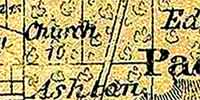 Church
Ed
10
Pac
Ashton